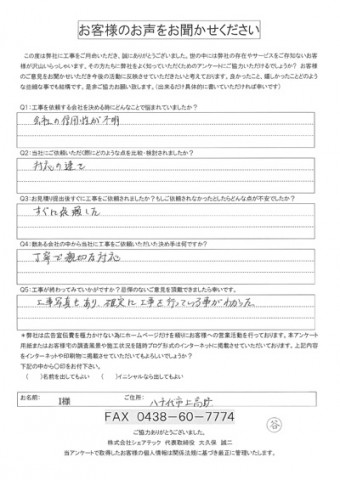 お客様のお声をお聞かせください
この度は弊社に工事をご用命いただき、誠にありがとうございました。世の中には弊社の存在やサービスをご存知ないお客
様が沢山いらっしゃいます。その方たちに弊社をよく知っていただくためのアンケートにご協力いただけるでしょうか？ お客様
のご意見をお聞かせいただき今後の活動に反映させていただきたいと考えております。良かったこと、嬉しかったことどのよう
な些細な事でも結構です、是非ご協力お願い致します。（出来るだけ具体的に書いていただければ幸いです）
Q1：工事を依頼する会社を決める時にどんなことで悩まれていましたか？
会社の信用性が不明
Q2：当社にご依頼いただく際にどのような点を比較・検討されましたか？
対応の速さ
Q3：お見積り提出後すぐに工事をご依頼されましたか？もしご依頼されなかったとしたらどんな点が不安でしたか？
すぐに依頼した
Q4：数ある会社の中から当社に工事をご依頼いただいた決め手は何ですか？
丁寧で親切な対応
Q5：工事が終わってみていかがですか？忌憚のないご意見を頂戴できましたら幸いです。
工事写真もあり、確実に工事を行っている事がわかった。
＊弊社は広告宣伝費を極力かけない為にホームページだけを頼りにお客様への営業活動を行っております。本アンケート
用紙またはお客様宅の調査風景や施工状況を随時ブログ形式のインターネットに掲載させていただいております。上記内容
をインターネットや印刷物に掲載させていただいてもよろしいでしょうか？
下記の中から〇印をお付下さい。
（　　）名前を出してもよい　（　　）イニシャルなら出してもよい
お名前：　I様　ご住所：　八千代市上高野
FAX 0438-60-7774
ご協力ありがとうございました。
株式会社シェアテック　代表取締役　大久保　誠二
当アンケートで取得したお客様の個人情報は関係法規に基づき厳正に管理いたします。